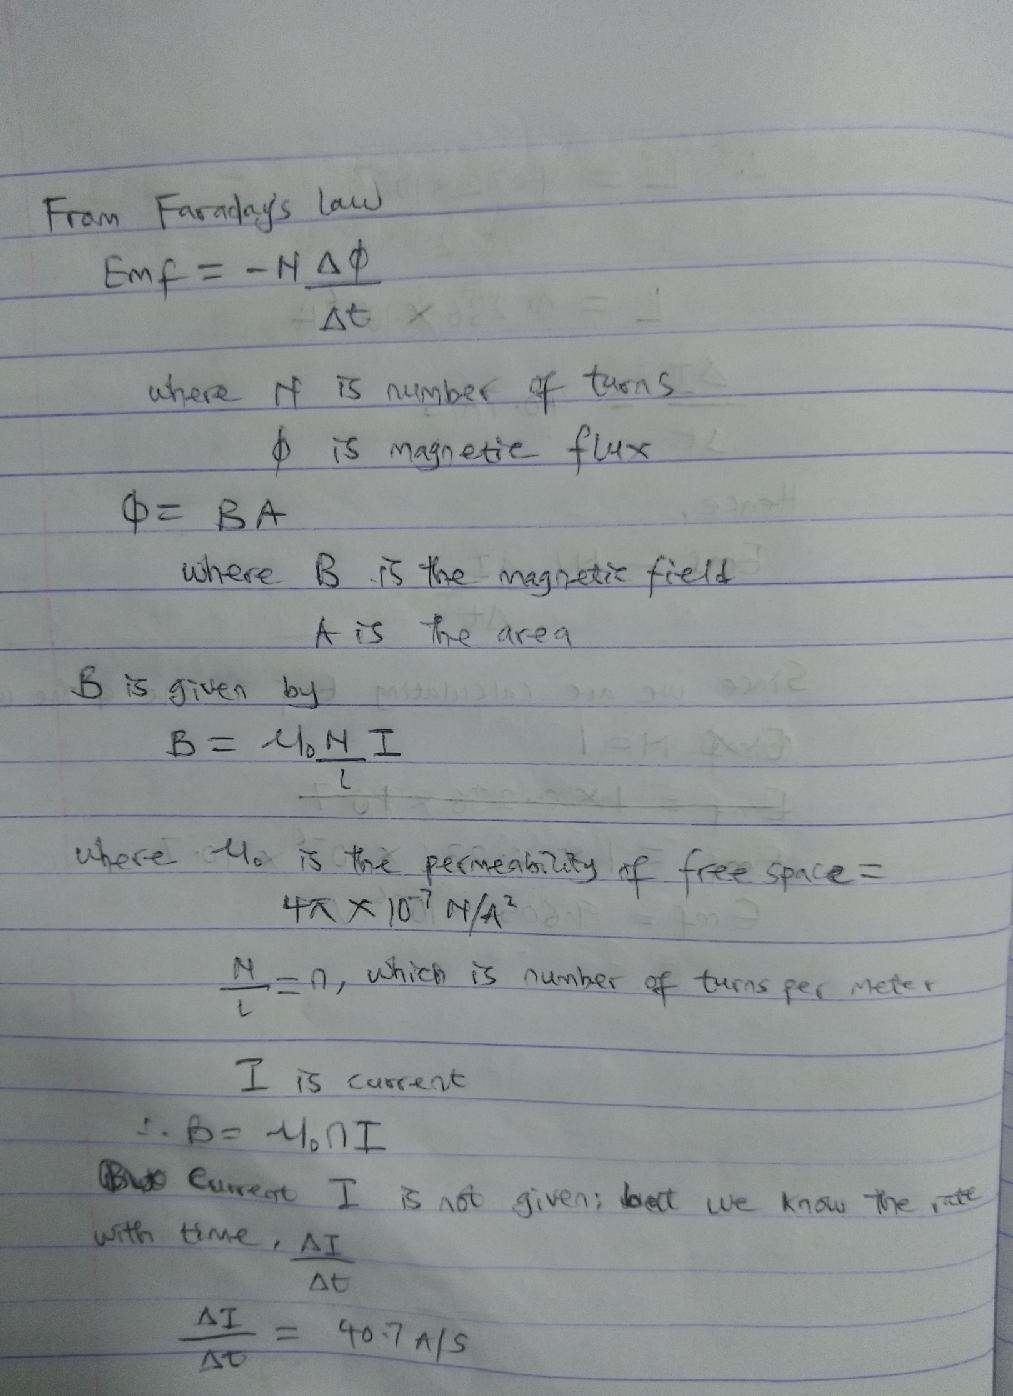 From Faraday's law
Emf = -N ΔΦ
Δt
where N is number of turns
ϕ is magnetic flux
Φ = BA
where B is the magnetic field
A is the area
B is given by
B = μ₀ N I
l
where μ₀ is the permeability of free space =
4π × 10⁻⁷ N/A²
N = n, which is number of turns per meter
l
I is current
∴ B = μ₀nI
Current I is not given; but we know the rate
with time, ΔI
Δt
ΔI = 40.7 A/S
Δt